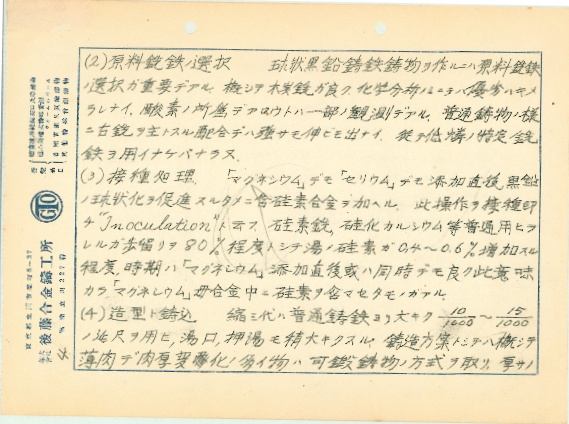 (2) 原料銑鉄ノ選択　球状黒鉛鋳鉄鋳物ヲ作ルニハ原料銑鉄
ノ選択ガ重要デアル. 概シテ木炭銑ガ良ク化学分析ノミニテハ優劣ハキメ
ラレナイ. 酸素ノ所為デアロウトハ一部ノ観測デアル. 普通鋳物ノ様
ニ古銑ヲ主トスル配合デハ強サモ伸ビモ出ナイ. 従テ低燐ノ特定銑
鉄ヲ用イナケバナラヌ.
(3) 接種処理.　「マグネシウム」デモ「セリウム」デモ添加直後, 黒鉛
ノ球状化ヲ促進スルタメニ含硅素合金ヲ加ヘル. 此操作ヲ接種即
チ "Inoculation" ト云フ. 硅素鉄, 硅化カルシウム等普通用ヒラ
レルガ歩留リヲ 80% 程度トシテ湯ノ硅素ガ 0.4〜0.6% 増加スル
程度, 時期ハ「マグネシウム」添加直後或ハ同時デモ良ク此意味
カラ「マグネシウム」母合金中ニ硅素ヲ含マセタモノガアル.
(4) 造型ト鋳込　縮ミ代ハ普通鋳鉄ヨリ大キク 10/1000 〜 15/1000
ノ延尺ヲ用ヒ, 湯口, 押湯モ稍大キクスル. 鋳造方案トシテハ概シテ
薄肉デ肉厚変化ノ多イ物ハ可鍛鋳物ノ方式ヲ取リ, 厚サノ
GTO
後藤合金鋳工所